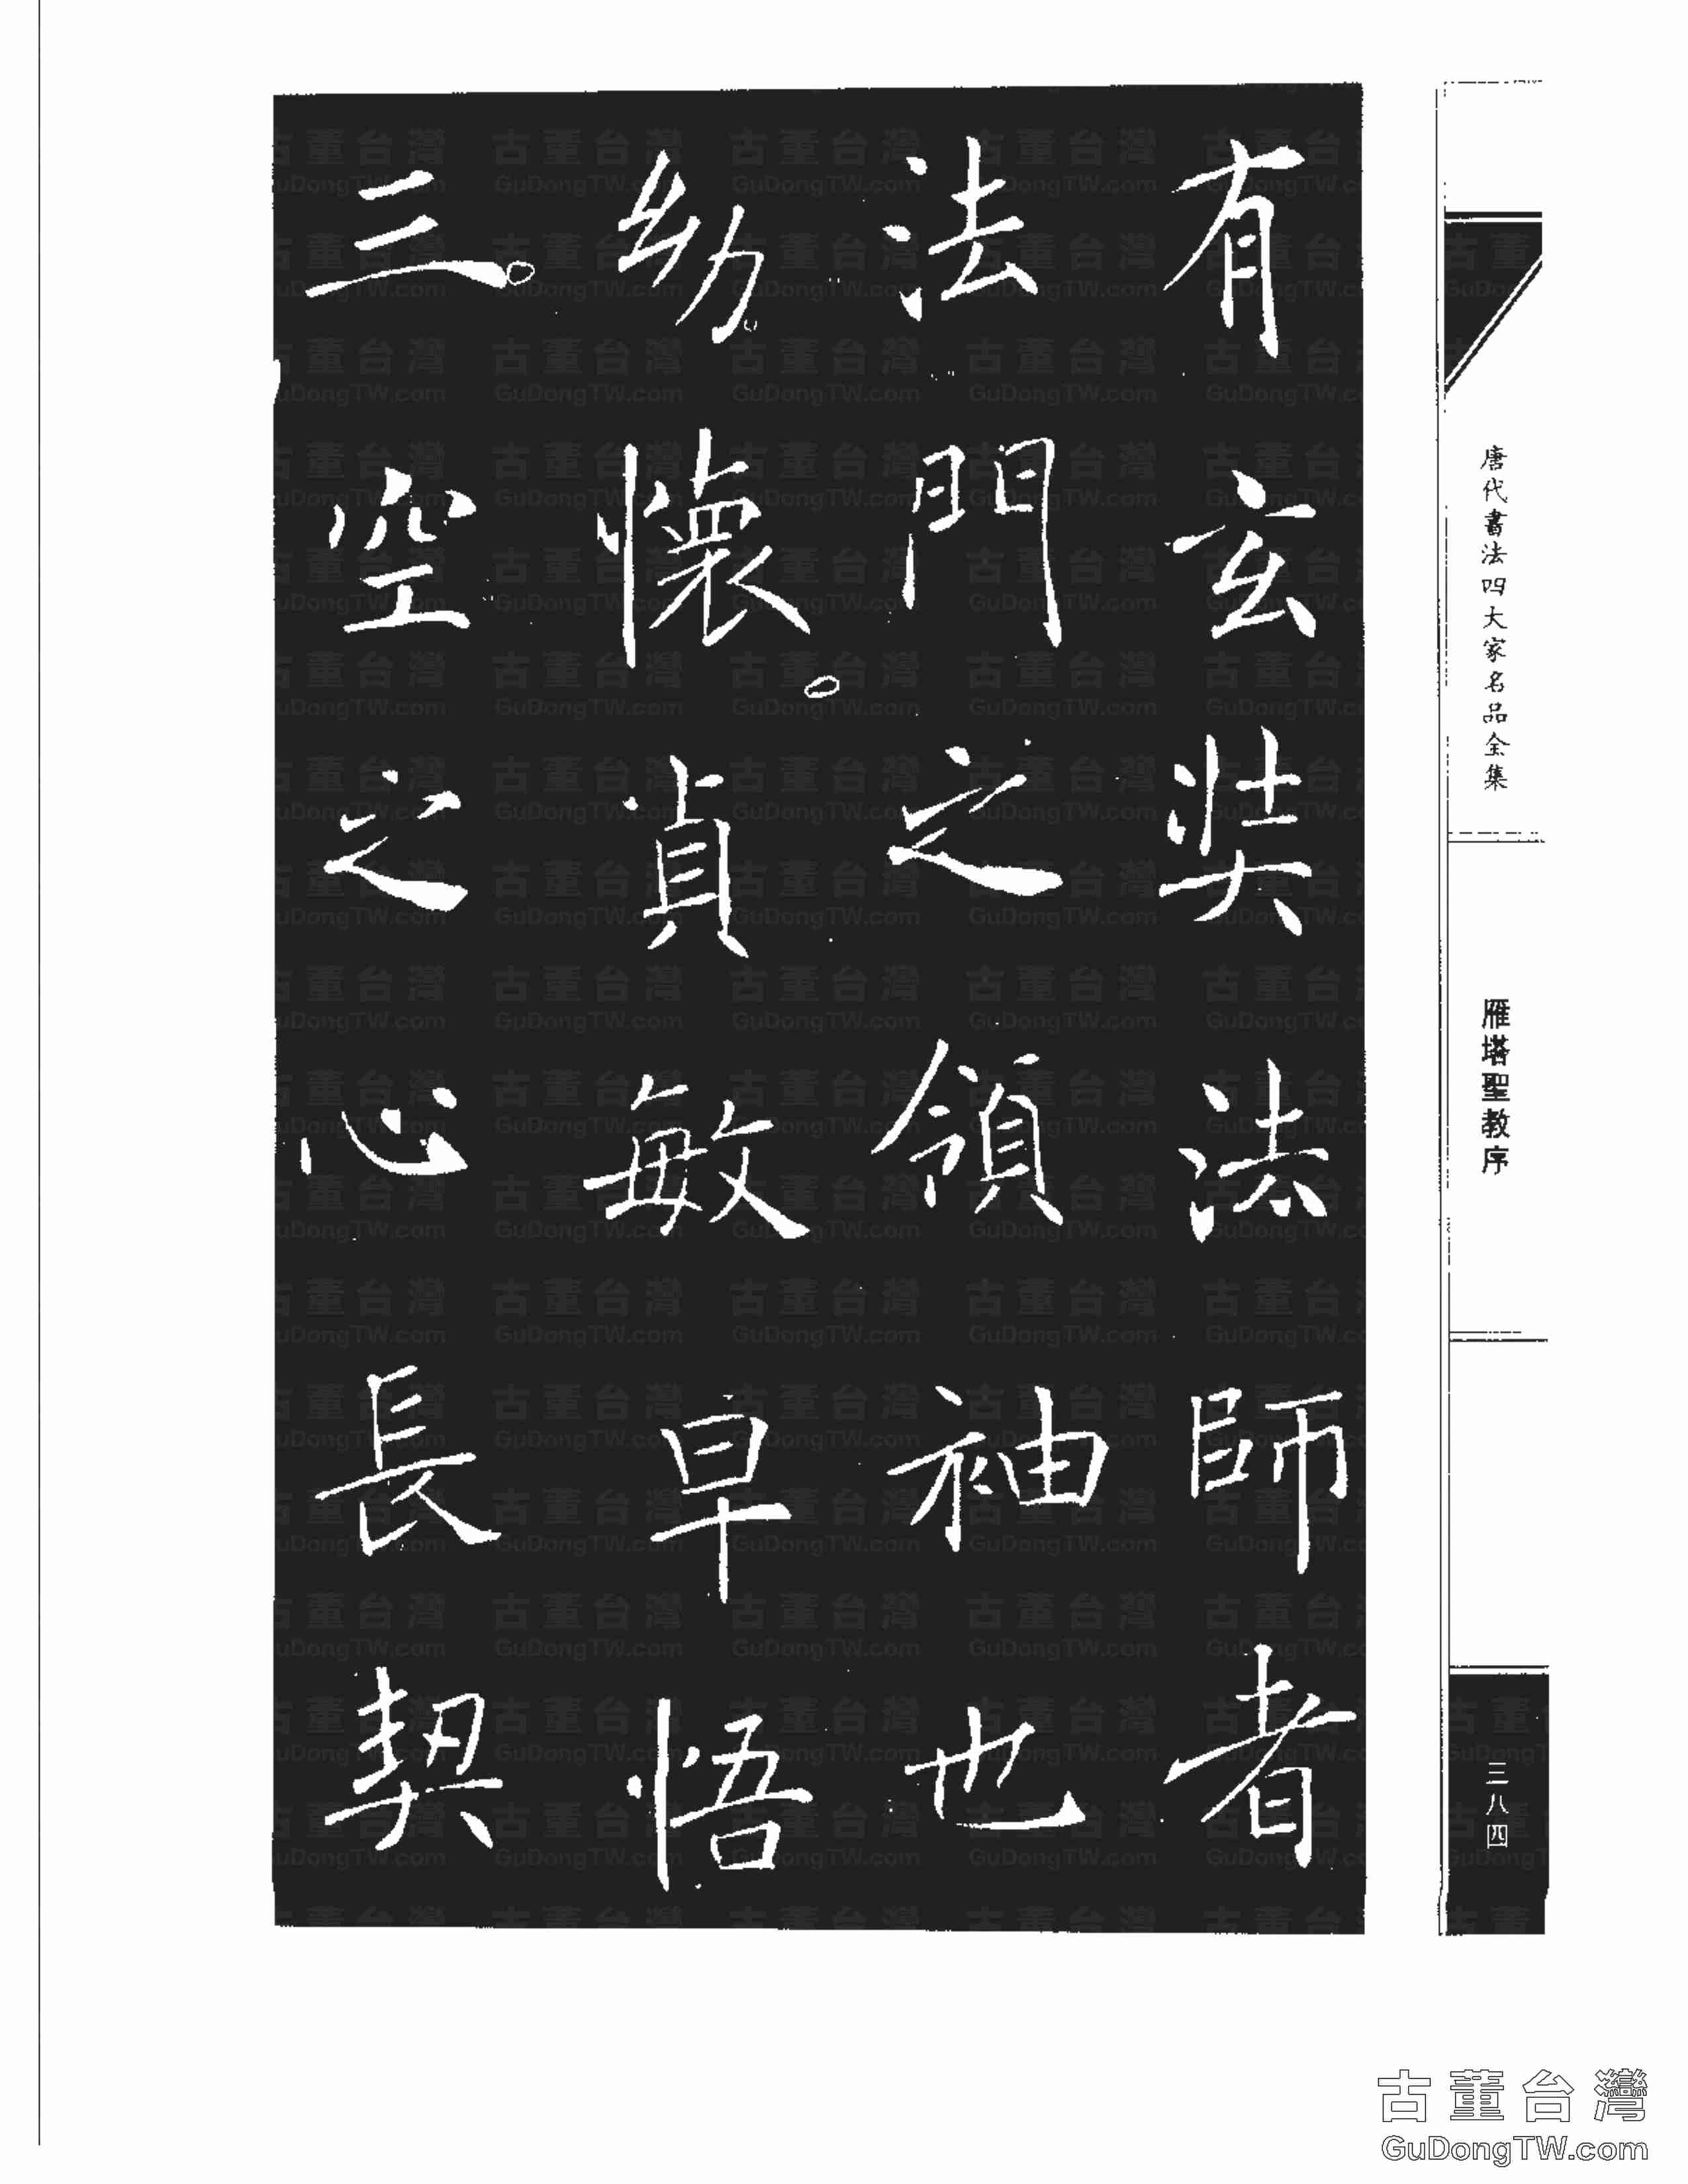 有玄奘法師者
法門之領袖也
幼懷貞敏早悟
三空之心長契
唐代書法四大家名品全集
雁塔聖教序
三八四
古董台灣
GuDongTW.com